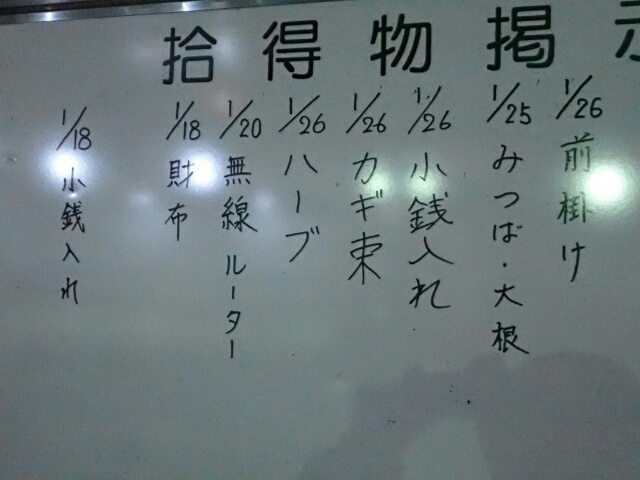 拾得物掲示
1/26 前掛け
1/25 みつば・大根
1/26 小銭入れ
1/26 カギ束
1/26 ハーブ
1/20 無線ルーター
1/18 財布
1/18 小銭入れ